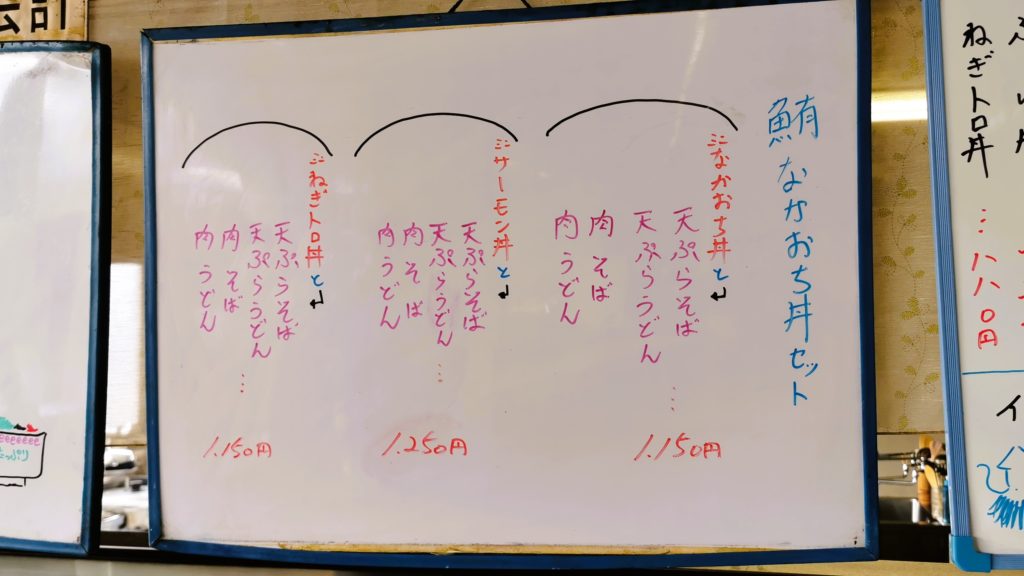 鮪なかおち丼セット
ミニなかおち丼と
天ぷらそば
天ぷらうどん…
肉そば
肉うどん
1.150円
ミニサーモン丼と
天ぷらそば
天ぷらうどん…
肉そば
肉うどん
1.250円
ミニねぎトロ丼と
天ぷらそば
天ぷらうどん…
肉そば
肉うどん
1.150円
ねぎトロ丼…八八〇円
会計